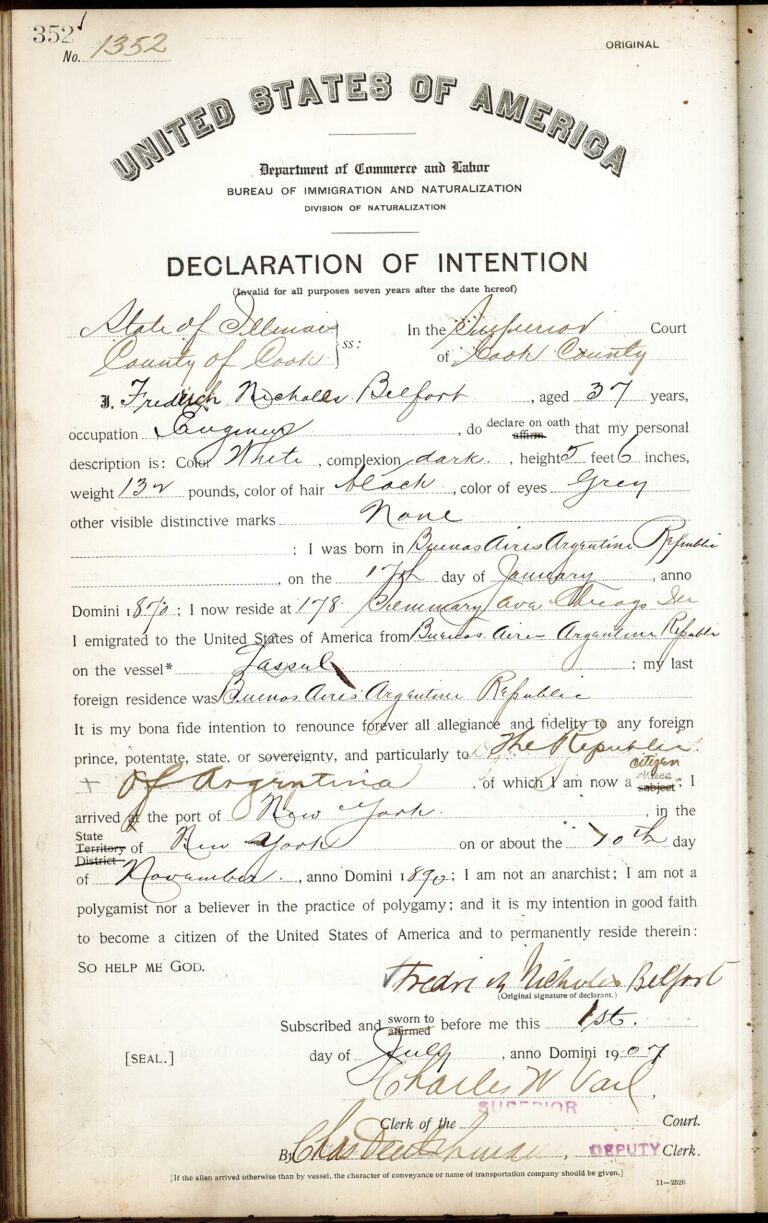 352
No. 1352
ORIGINAL
UNITED STATES OF AMERICA
Department of Commerce and Labor
BUREAU OF IMMIGRATION AND NATURALIZATION
DIVISION OF NATURALIZATION
DECLARATION OF INTENTION
(Invalid for all purposes seven years after the date hereof)
State of Illinois
County of Cook } ss:
In the Superior Court
of Cook County
I, Fredrich Nicholes Belfort, aged 37 years,
occupation Engineer, do declare on oath affirm that my personal
description is: Color White, complexion dark, height 5 feet 6 inches,
weight 132 pounds, color of hair black, color of eyes Grey
other visible distinctive marks None
; I was born in Buenos Aires Argentine Republic
, on the 17th day of January, anno
Domini 1870; I now reside at 178 Ave Chicago
I emigrated to the United States of America from Buenos Aires Argentine Republic
on the vessel* ; my last
foreign residence was Buenos Aires Argentine Republic
It is my bona fide intention to renounce forever all allegiance and fidelity to any foreign
prince, potentate, state, or sovereignty, and particularly to The Republic
of Argentina, of which I am now a citizen subject; I
arrived at the port of New York, in the
State Territory District of New York on or about the 10th day
of November, anno Domini 1890; I am not an anarchist; I am not a
polygamist nor a believer in the practice of polygamy; and it is my intention in good faith
to become a citizen of the United States of America and to permanently reside therein:
SO HELP ME GOD.
Fredrich Nicholes Belfort
(Original signature of declarant.)
Subscribed and sworn to affirmed before me this 1st.
[SEAL.]
day of July, anno Domini 1907
Charles W Vail,
SUPERIOR
Clerk of the Court.
By Chas , DEPUTY Clerk.
[If the alien arrived otherwise than by vessel, the character of conveyance or name of transportation company should be given.]
11—2526